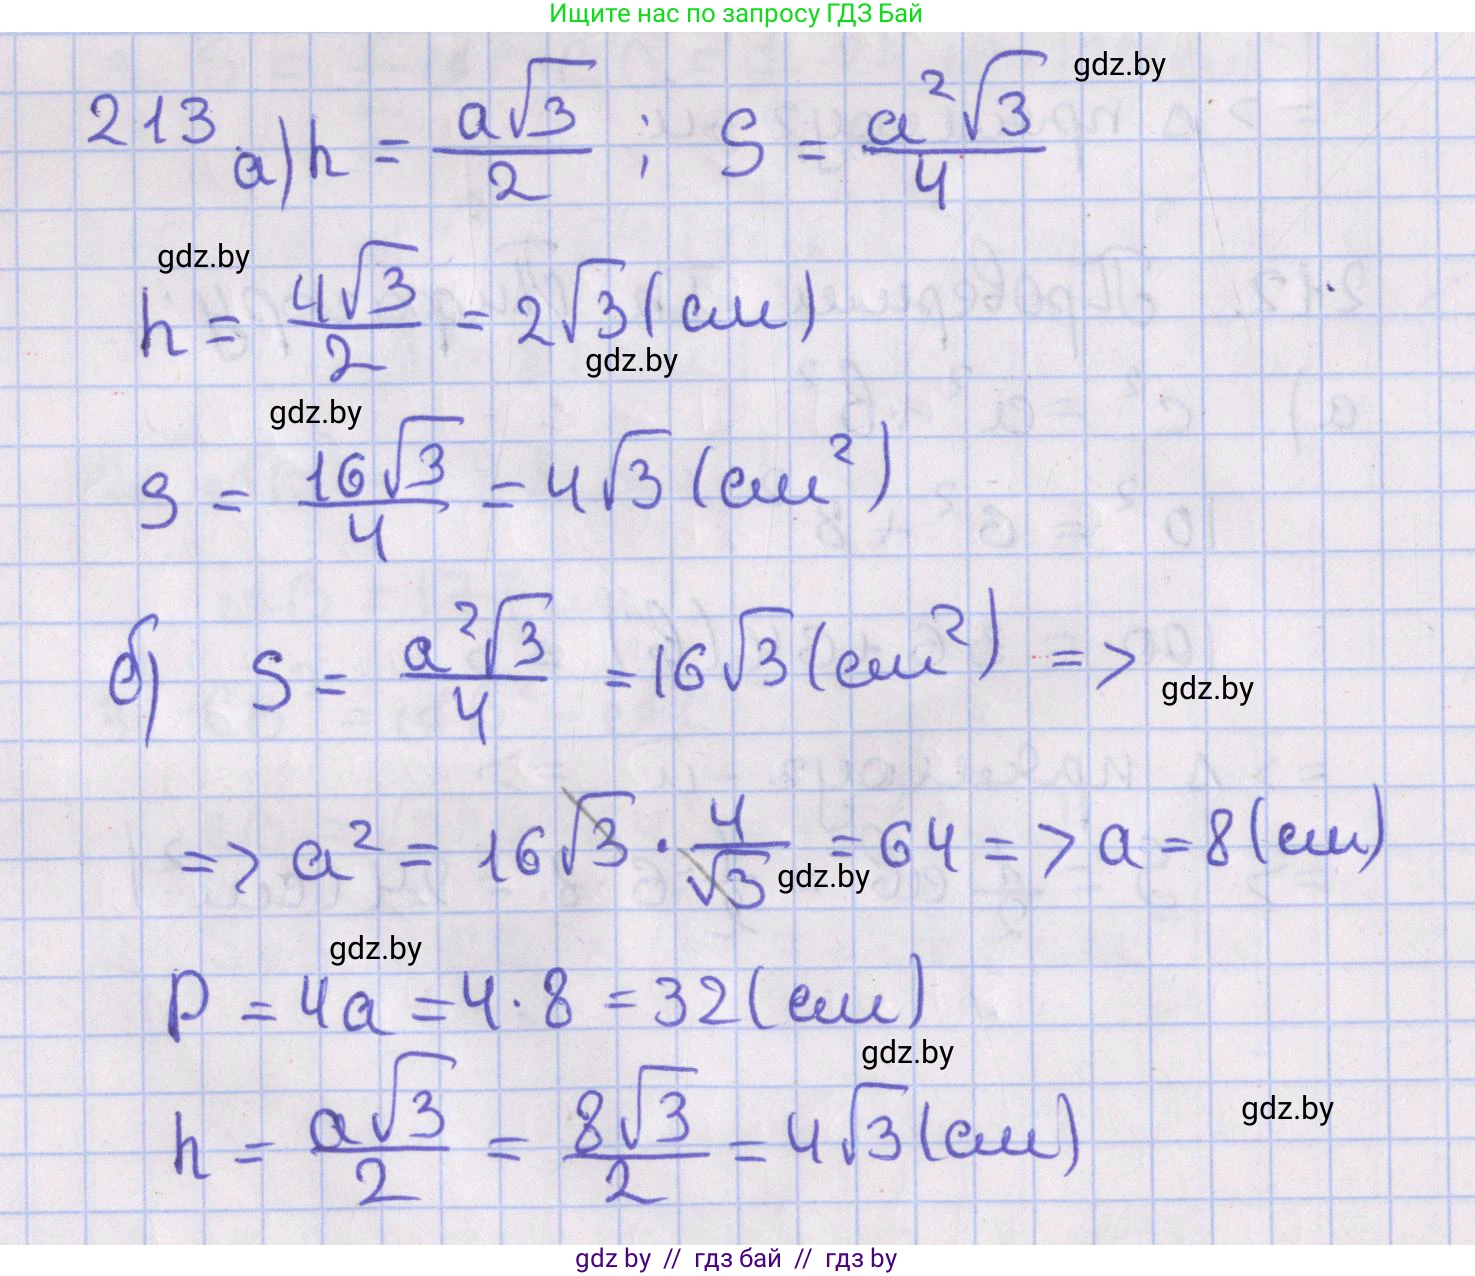 Ищите нас по запросу ГДЗ Бай
gdz.by
213 а) h = a√3/2 ; S = a²√3/4
gdz.by
h = 4√3/2 = 2√3 (см)
gdz.by
gdz.by
S = 16√3/4 = 4√3 (см²)
б) S = a²√3/4 = 16√3 (см²) =>
gdz.by
=> a² = 16√3 · 4/√3 = 64 => a = 8 (см)
gdz.by
gdz.by
P = 4a = 4·8 = 32 (см)
gdz.by
h = a√3/2 = 8√3/2 = 4√3 (см)
gdz.by
gdz by // гдз бай // гдз by